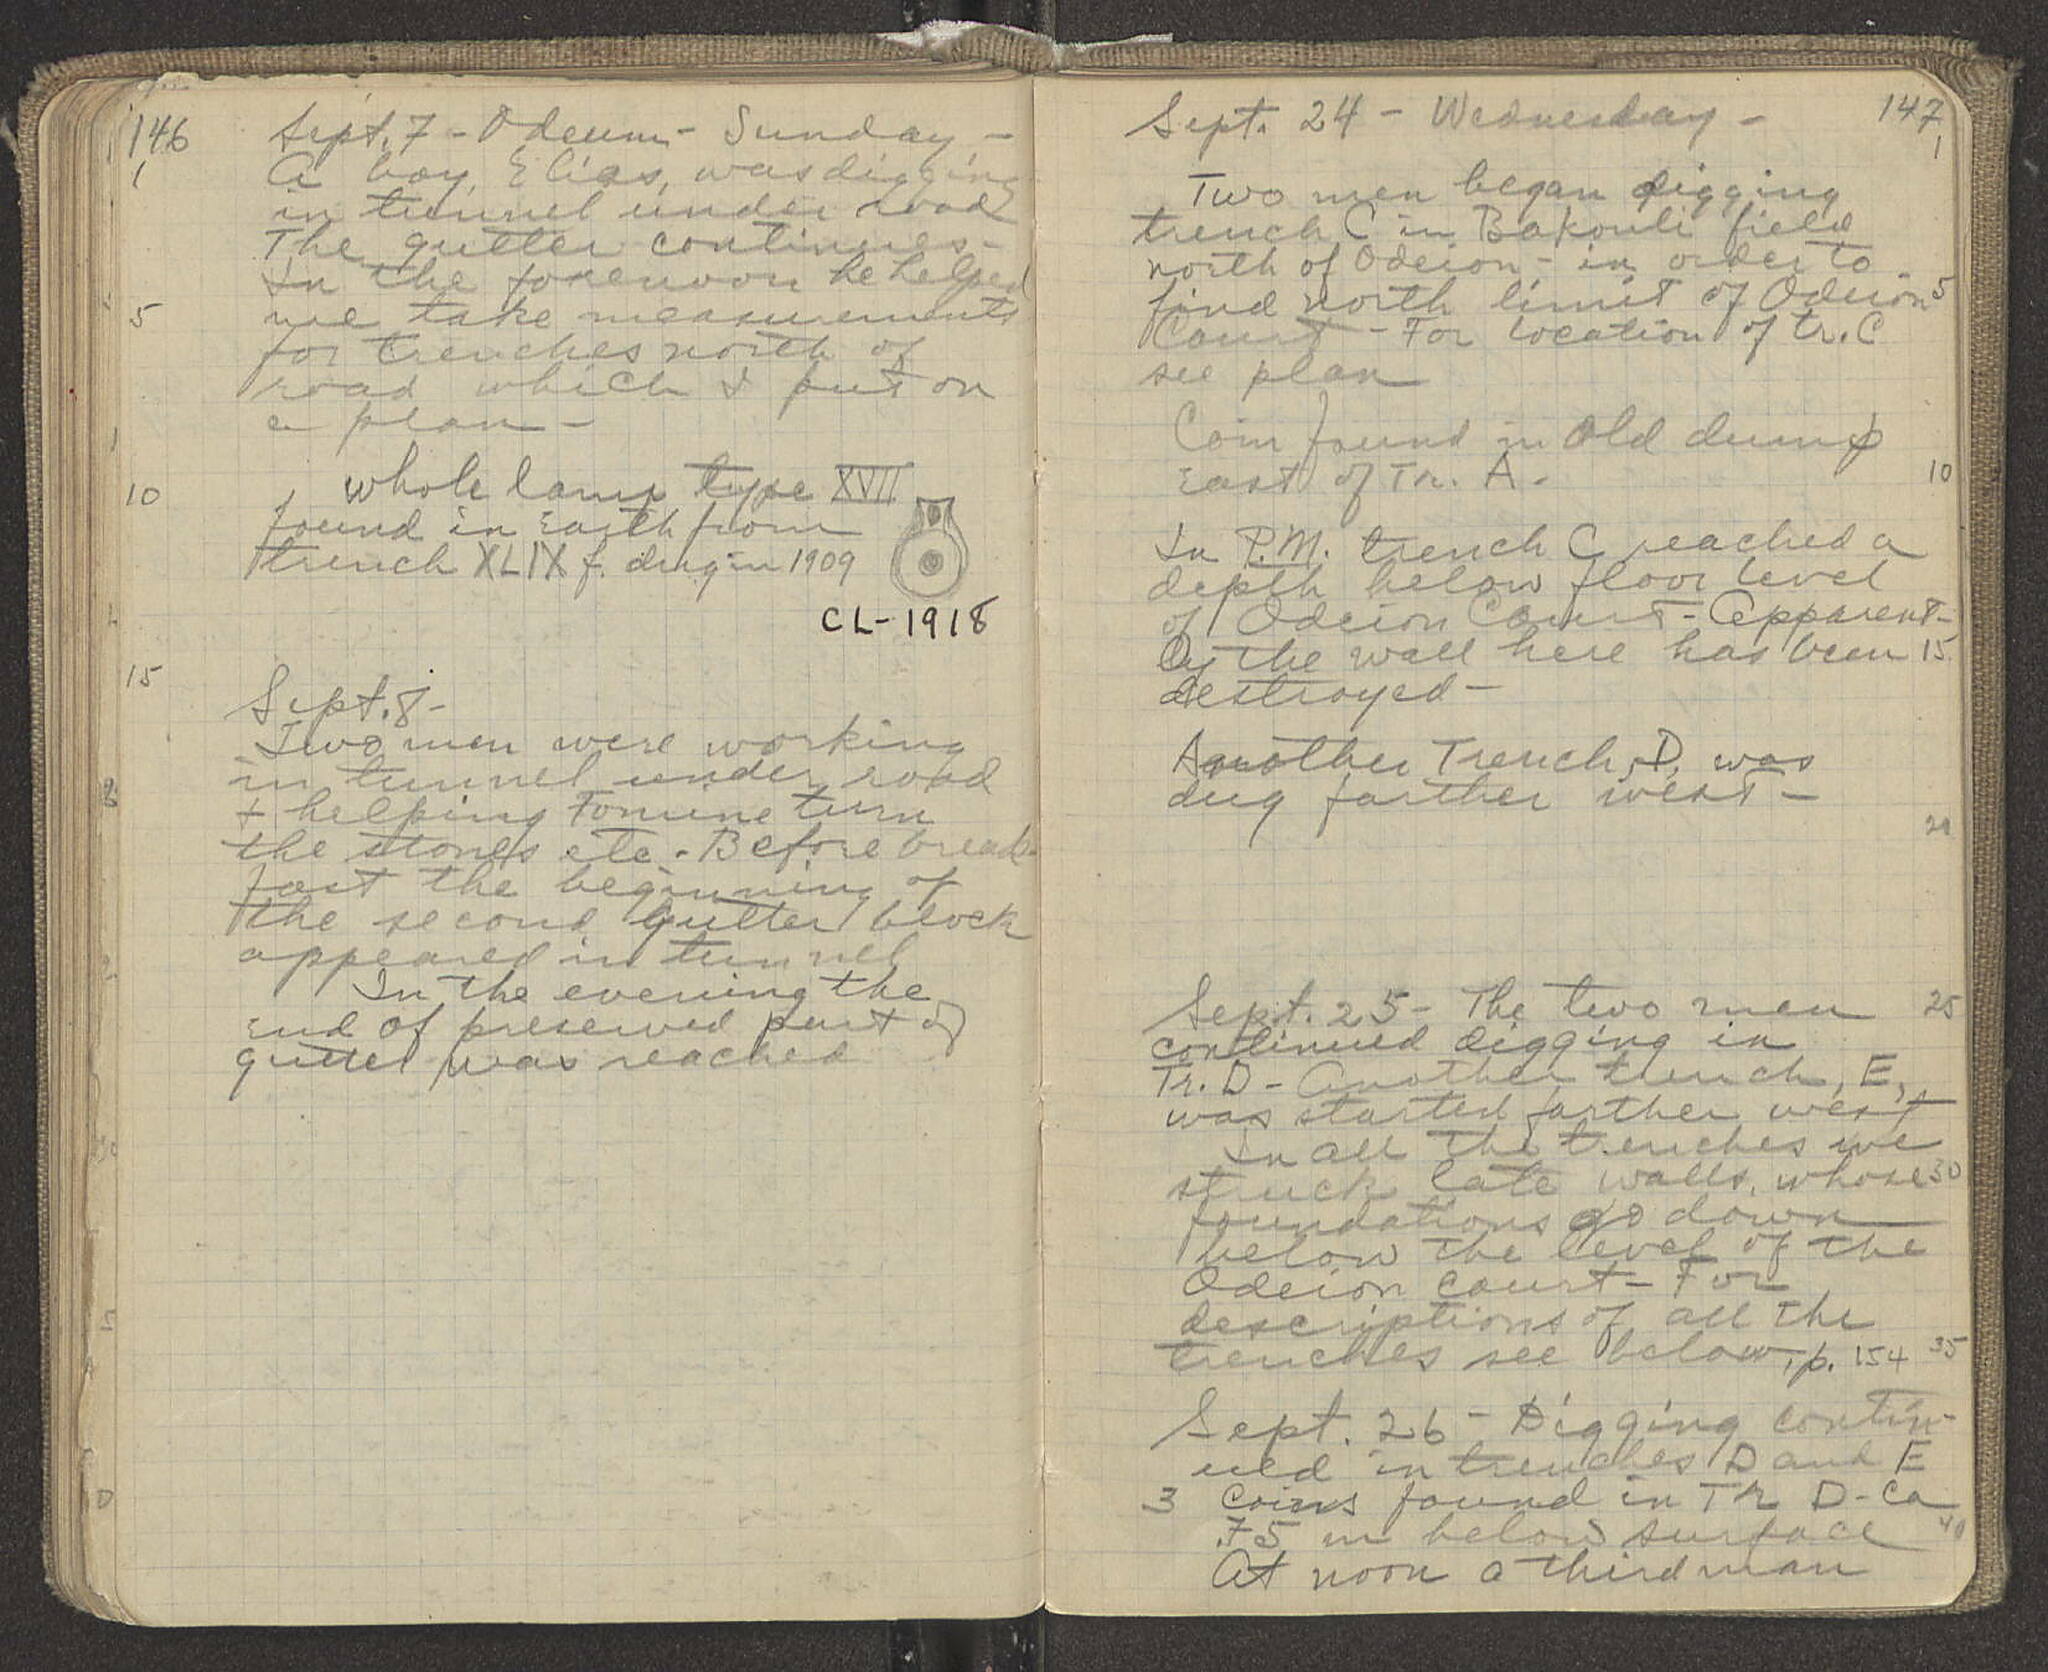 146
Sept. 7 - Odeum - Sunday -
1
A boy, Elias, was digging
in tunnel under road
The gutter continues -
In the forenoon he helped
5
me take measurements
for trenches north of
road which I put on
a plan -
10
whole lamp type XVII
found in Earth from
trench XLIX f. dug in 1909
CL-1918
15
Sept. 8 -
Two men were working
in tunnel under road
+ helping Fomine turn
the stones etc. - Before break-
fast the beginning of
the second gutter block
appeared in tunnel
In the evening the
End of preserved part of
gutter was reached
147
Sept. 24 - Wednesday -
1
Two men began digging
trench C in Bakouli field
north of Odeion - in order to
find north limit of Odeion 5
Court - For location of tr. C
see plan
Coin found in Old dump
East of Tr. A. - 10
In P.M. trench C reached a
depth below floor level
of Odeion Court - Apparent-
ly the wall here has been 15
destroyed -
Another Trench, D, was
dug farther west -
20
Sept. 25 - The two men 25
continued digging in
Tr. D - Another trench, E,
was started farther west
In all the trenches we
struck late walls, whose 30
foundations go down
below the level of the
Odeion court - For
descriptions of all the
trenches see below, p. 154 35
Sept. 26 - Digging contin-
ued in trenches D and E
3 Coins found in Tr D - Ca
.75 m below surface 40
At noon a third man